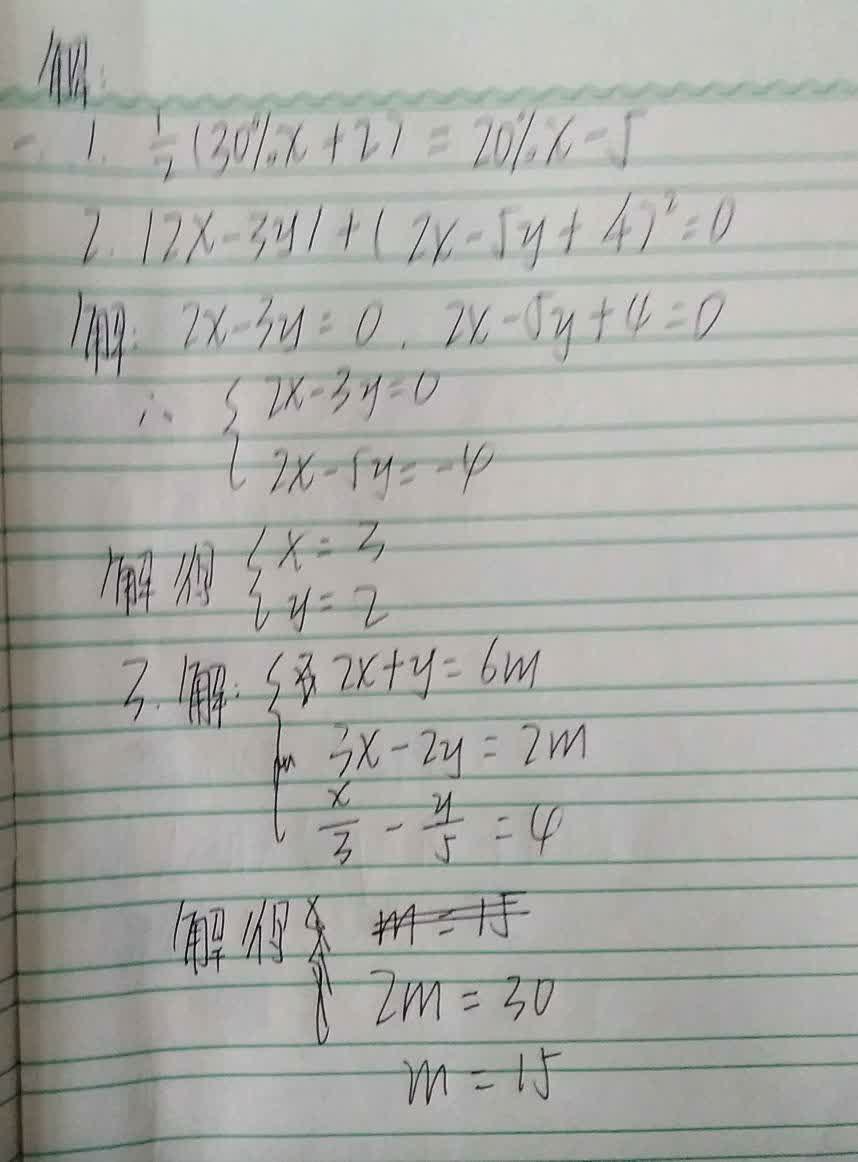 解:
一. 1. 1/2 (30%x+2) = 20%x-5
2. |2x-3y|+(2x-5y+4)²=0
解: 2x-3y=0. 2x-5y+4=0
∴ { 2x-3y=0
2x-5y=-4
解得 { x=3
y=2
3. 解: { 2x+y=6m
3x-2y=2m
x/3 - y/5 = 4
解得 m=15
2m=30
m=15